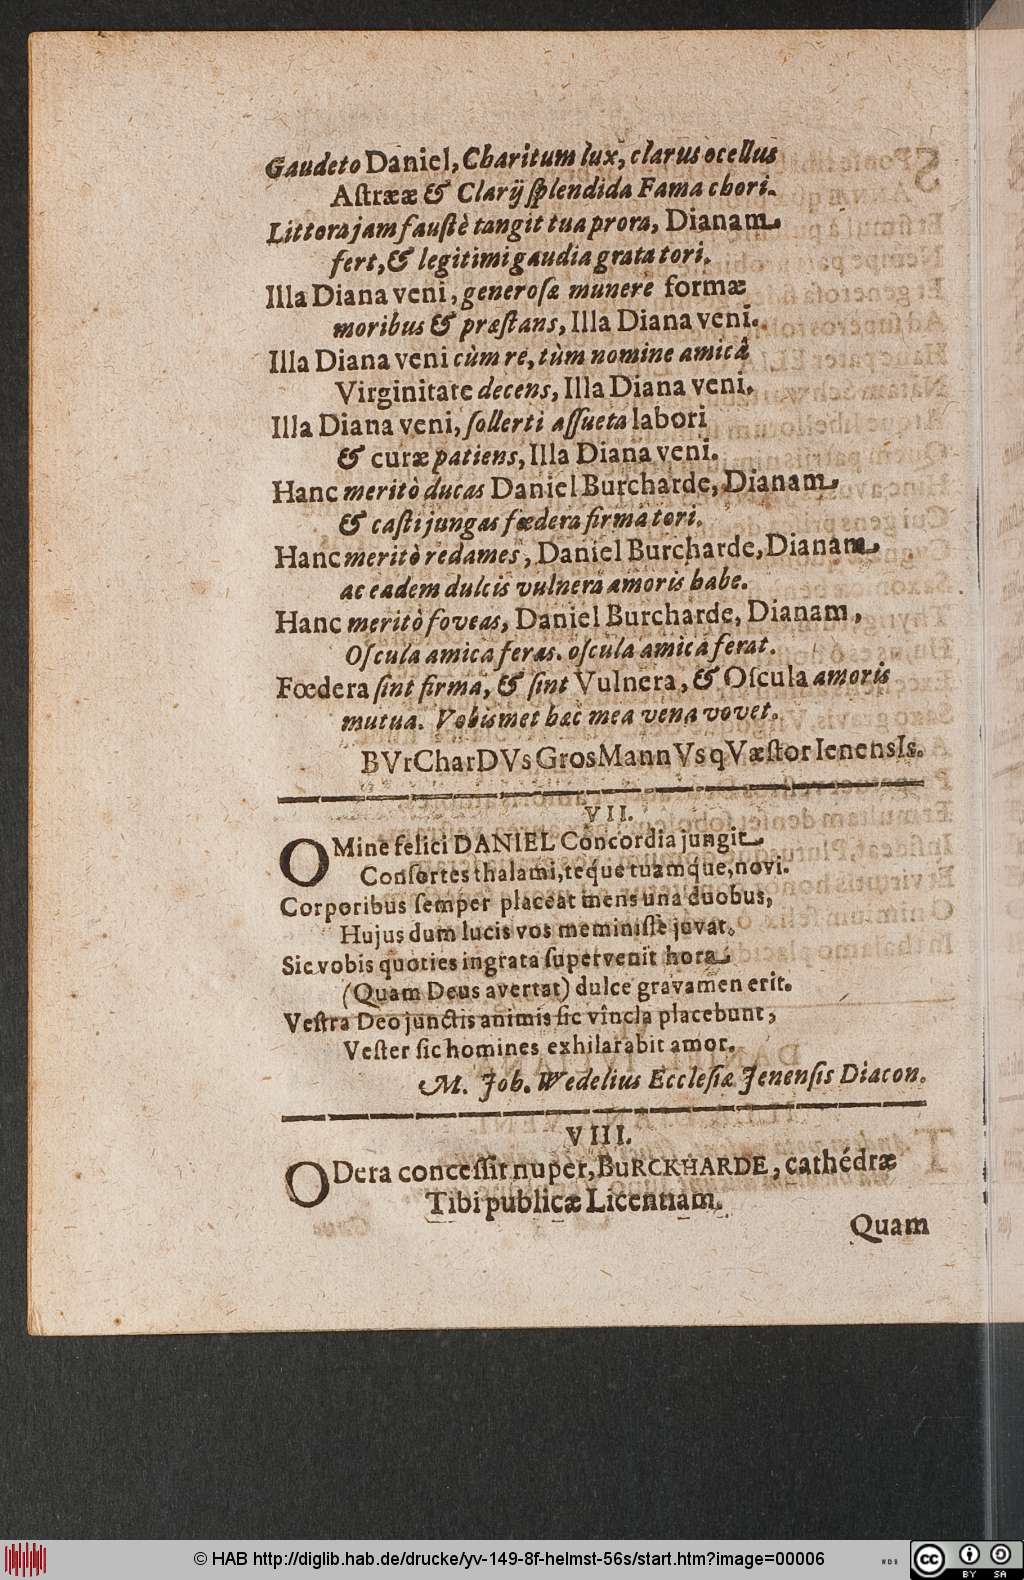 Gaudeto Daniel, Charitum lux, clarus ocellus
Astrææ & Clarij splendida Fama chori.
Littora jam faustè tangit tua prora, Dianam
fert, & legitimi gaudia grata tori.
Illa Diana veni, generosæ munere formæ
moribus & præstans, Illa Diana veni.
Illa Diana veni cùm re, tùm nomine amicâ
Virginitate decens, Illa Diana veni.
Illa Diana veni, sollerti assueta labori
& curæ patiens, Illa Diana veni.
Hanc meritò ducas Daniel Burcharde, Dianam
& casti jungas fœdera firma tori.
Hanc meritò redames, Daniel Burcharde, Dianam
ac eadem dulcis vulnera amoris habe.
Hanc meritò foveas, Daniel Burcharde, Dianam,
Oscula amica feras. oscula amica ferat.
Fœdera sint firma, & sint Vulnera, & Oscula amoris
mutua. Vobismet hæc mea vena vovet.
BVrCharDVs GrosMannVs qVæstor IenensIs.
VII.
OMine felici DANIEL Concordia jungit
Consortes thalami, téque tuamque, novi.
Corporibus semper placeat mens una duobus,
Hujus dum lucis vos meminisse juvat.
Sic vobis quoties ingrata supervenit hora
(Quam Deus avertat) dulce gravamen erit.
Vestra Deo junctis animis sic vincla placebunt,
Vester sic homines exhilarabit amor.
M. Joh. Wedelius Ecclesiæ Jenensis Diacon.
VIII.
ODera concessit nuper, BURCKHARDE, cathédræ
Tibi publicæ Licentiam.
Quam
© HAB http://diglib.hab.de/drucke/yv-149-8f-helmst-56s/start.htm?image=00006
WDB
cc BY SA